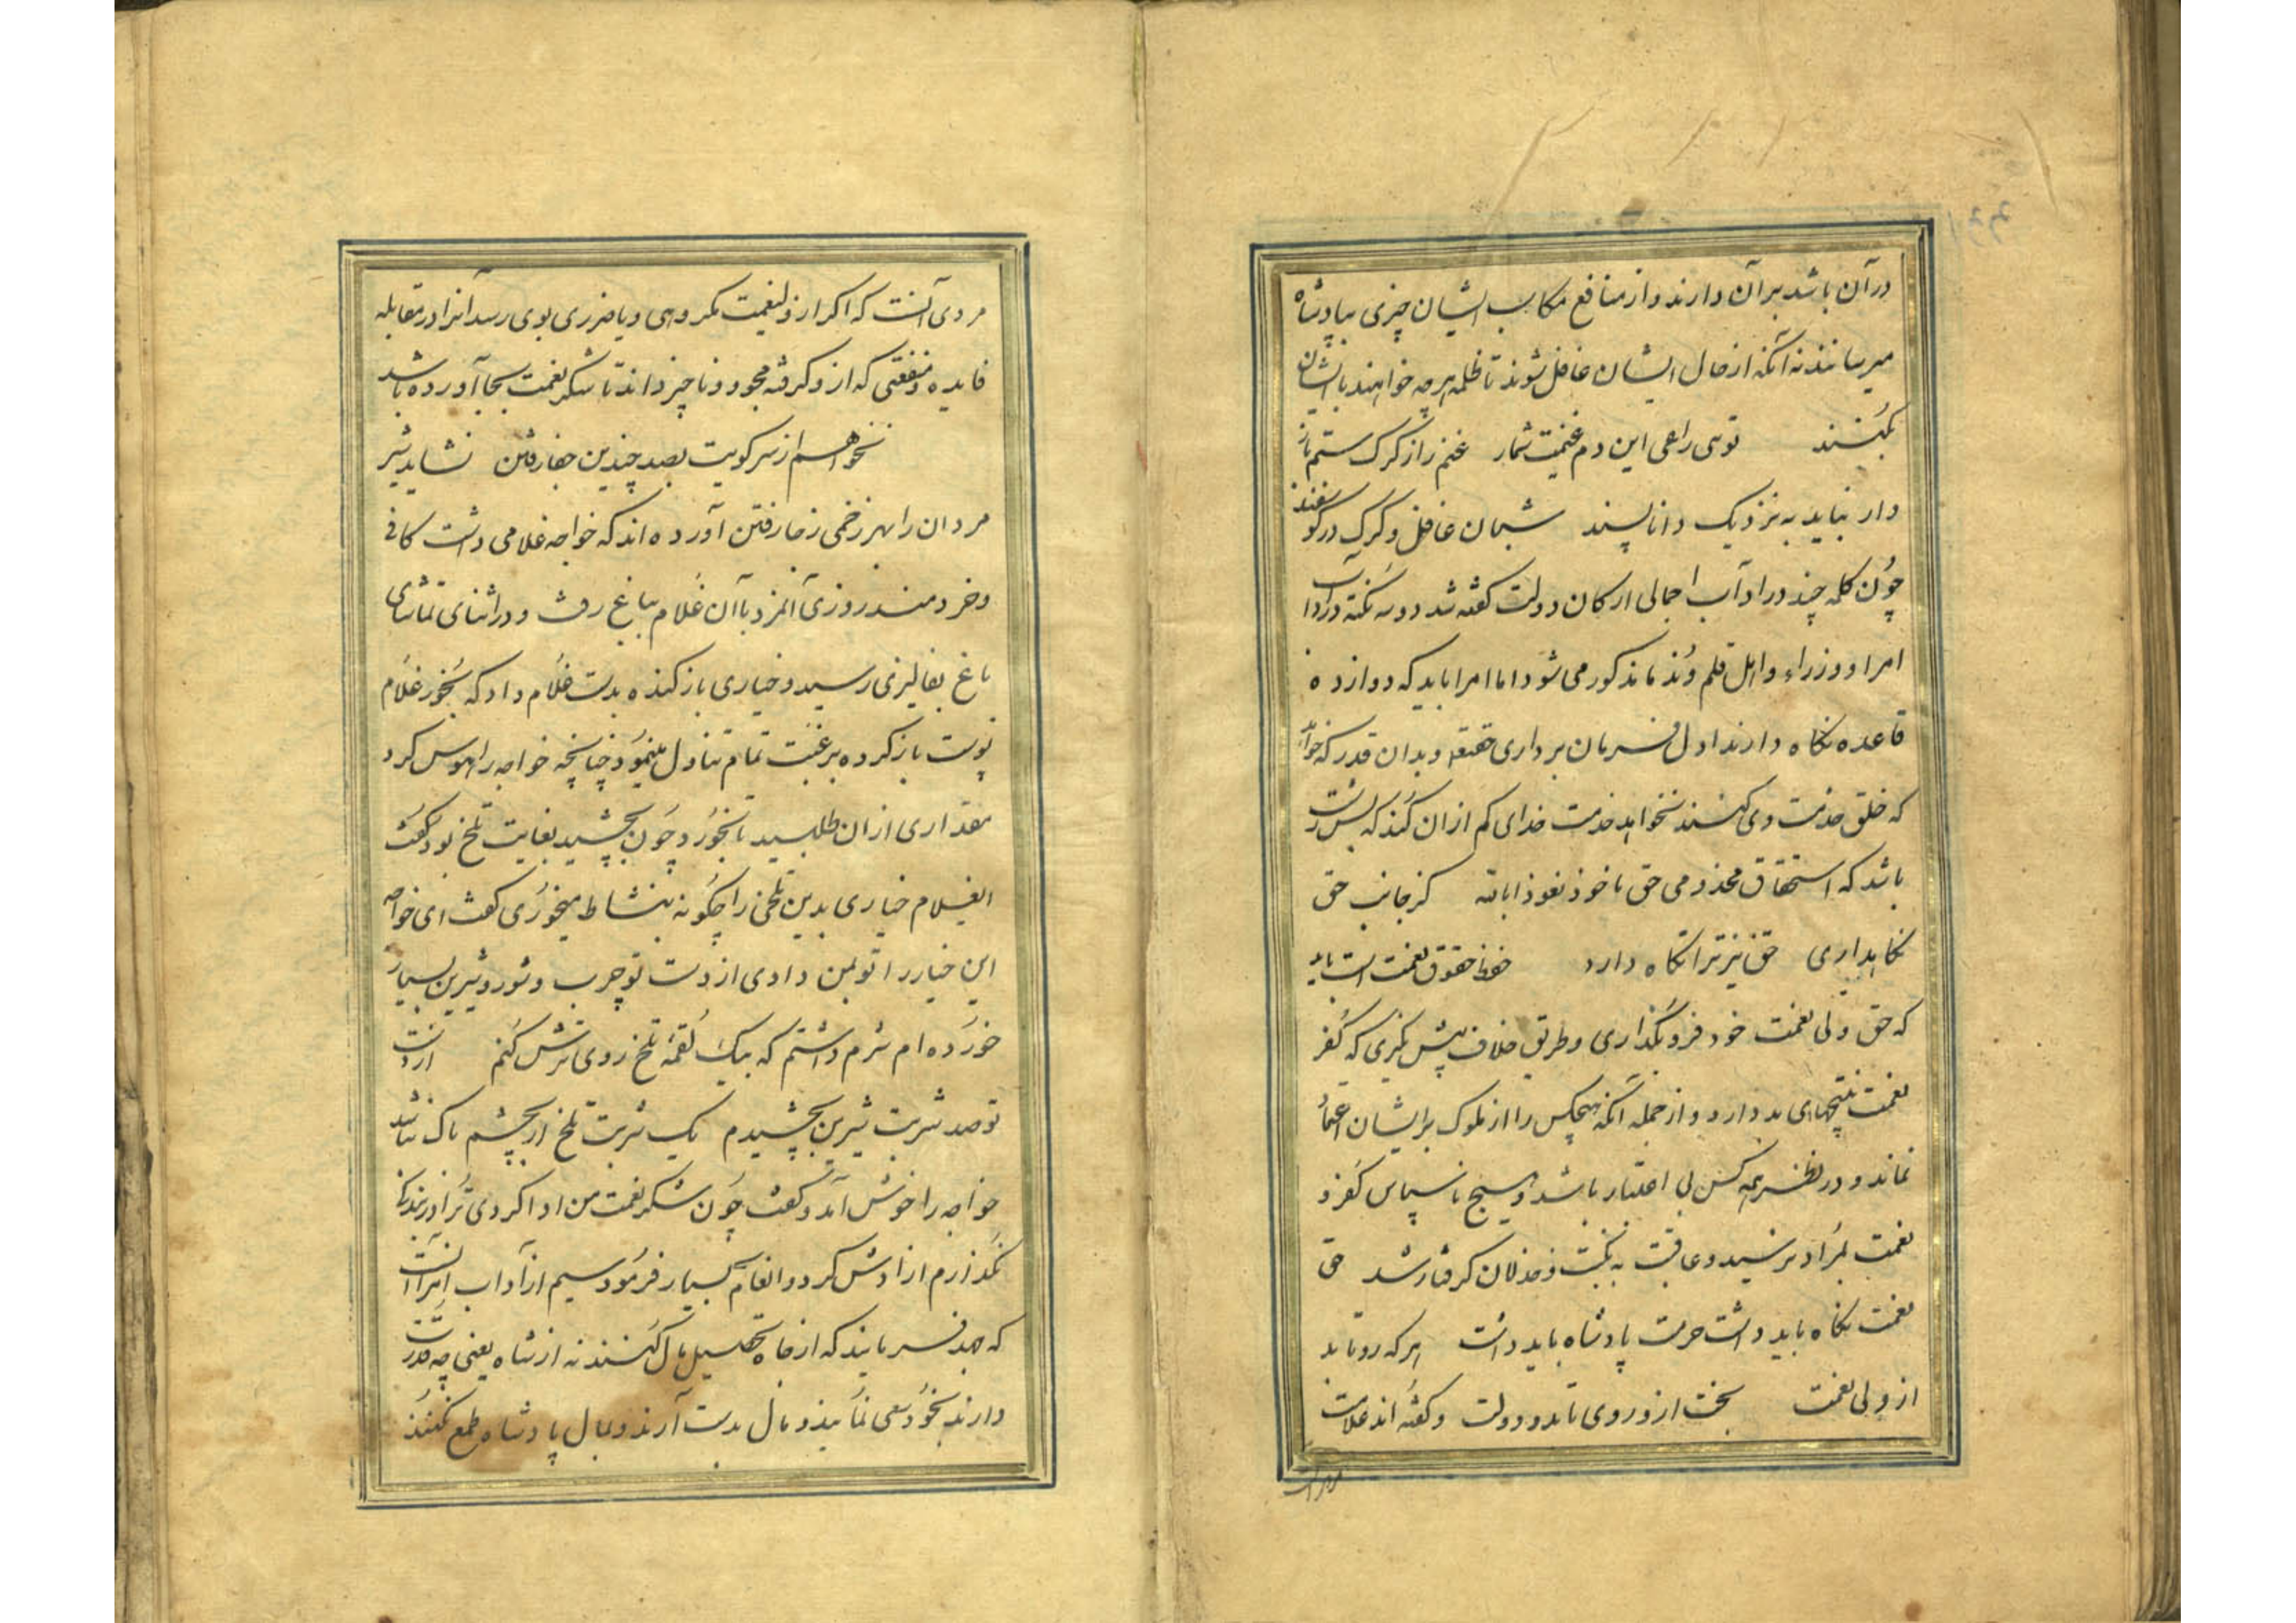 در آن باشد بر آن دارند و از منافع مکاسب ایشان چیزی بپادشاه
میرسانند نه آنکه از حال ایشان غافل شوند تا ظلمه هر چه خواهند با ایشان
بکنند توی راعی این دم غنیمت شمار غنم را ز کرک ستم باز
دار نیاید به نزدیک دانا پسند شبان غافل و کرک در کوسفند
چون کلمه چند در اداب اجمالی ارکان دولت کفته شد دو سه نکته در آداب
امرا و وزراء و اهل قلم و ندما مذکور می شود اما امرا باید که دوازده
قاعده نکاه دارند اول فرمان برداری حقتعه و بدان قدر که خواهد
که خلق خدمت وی کنند نخواهد خدمت خدای کم از ان کند که پس زشت
باشد که استحقاق مخدومی حق با خود نعوذ بالله کر جانب حق
نکاهداری حق نیز ترا نکاه دارد حفظ حقوق نعمت است باید
که حق ولی نعمت خود فرو نکذاری و طریق خلاف پیش نکیری که کفر
نعمت نتیجهای بد دارد و از جمله آنکه هیچکس را از ملوک بر ایشان اعتماد
نماند و در نظر همه کس بی اعتبار باشد و هیچ ناسپاس کفر
نعمت بمراد نرسید و عاقبت به نکبت و خذلان کرفتار شد حق
نعمت نکاه باید داشت حرمت پادشاه باید داشت هر که رو تابد
از ولی نعمت بخت از و روی تابد و دولت و کفته اند علامت
مردی آنست که اکر از ولینعمت مکروهی و یا ضرری بوی رسد آنرا در مقابله
فایده و منفعتی که از و کرفته محجود و ناچیز داند تا شکر نعمت بجا آورده باشد
نخواهم از سر کویت بصد چندین جفا رفتن نشاید شیر
مردان را بهر زخمی ز جا رفتن آورده اند که خواجه غلامی داشت کافی
و خردمند روزی آنمرد با آن غلام بباغ رفت و در اثنای تماشای
باغ بفالیزی رسید و خیاری باز کنده بدست غلام داد که بخور غلام
پوست باز کرده برغبت تمام تناول مینمود چنانچه خواجه را هوس کرد
مقداری از ان طلبید تا بخورد چون بچشید بغایت تلخ بود کفت
ایغلام خیاری بدین تلخی را چکونه بنشاط میخوری کفت ای خواجه
این خیار را تو بمن دادی از دست تو چرب و شور و شیرین بسیار
خورده ام شرم داشتم که بیک لقمه تلخ روی ترش کنم از دست
تو صد شربت شیرین بچشیدم یک شربت تلخ ار بچشم باک نباشد
خواجه را خوش آمد و کفت چون شکر نعمت من ادا کردی ترا در بندکی
نکذارم ازادش کرد و انعام بسیار فرمود سیم از آداب امرا آنست
که جهد فرمایند که از جاه تحصیل مال کنند نه از شاه یعنی چه قدرت
دارند بخود سعی نمایند و مال بدست آرند و بمال پادشاه طمع نکنند